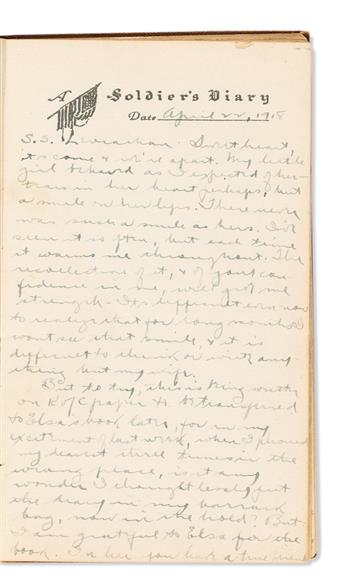 A Soldier's Diary
Date April 22, 1918
S.S. Leviathan. Sweetheart,
it's come & we're apart. My little
girl behaved as I expected of her
tears in her heart perhaps, but
a smile on her lips. There never
was such a smile as hers. I've
seen it so often, but each time
it warms me throughout. The
recollection of it, & of your con
fidence in me, will give me
strength. It's difficult even now
to realize that for long months I
won't see that smile, & it is
difficult to think or write any-
thing but my wife.
But to try, this is being written
on K of C paper to be transferred
to Elsa's book later, for in my
excitement of last week, when I phoned
my dearest three times in the
wrong place, is it any
wonder I thoughtlessly put
the diary in my barrack
bag, now in the hold? But
I am grateful to Elsa for the
book. In her you have a true friend